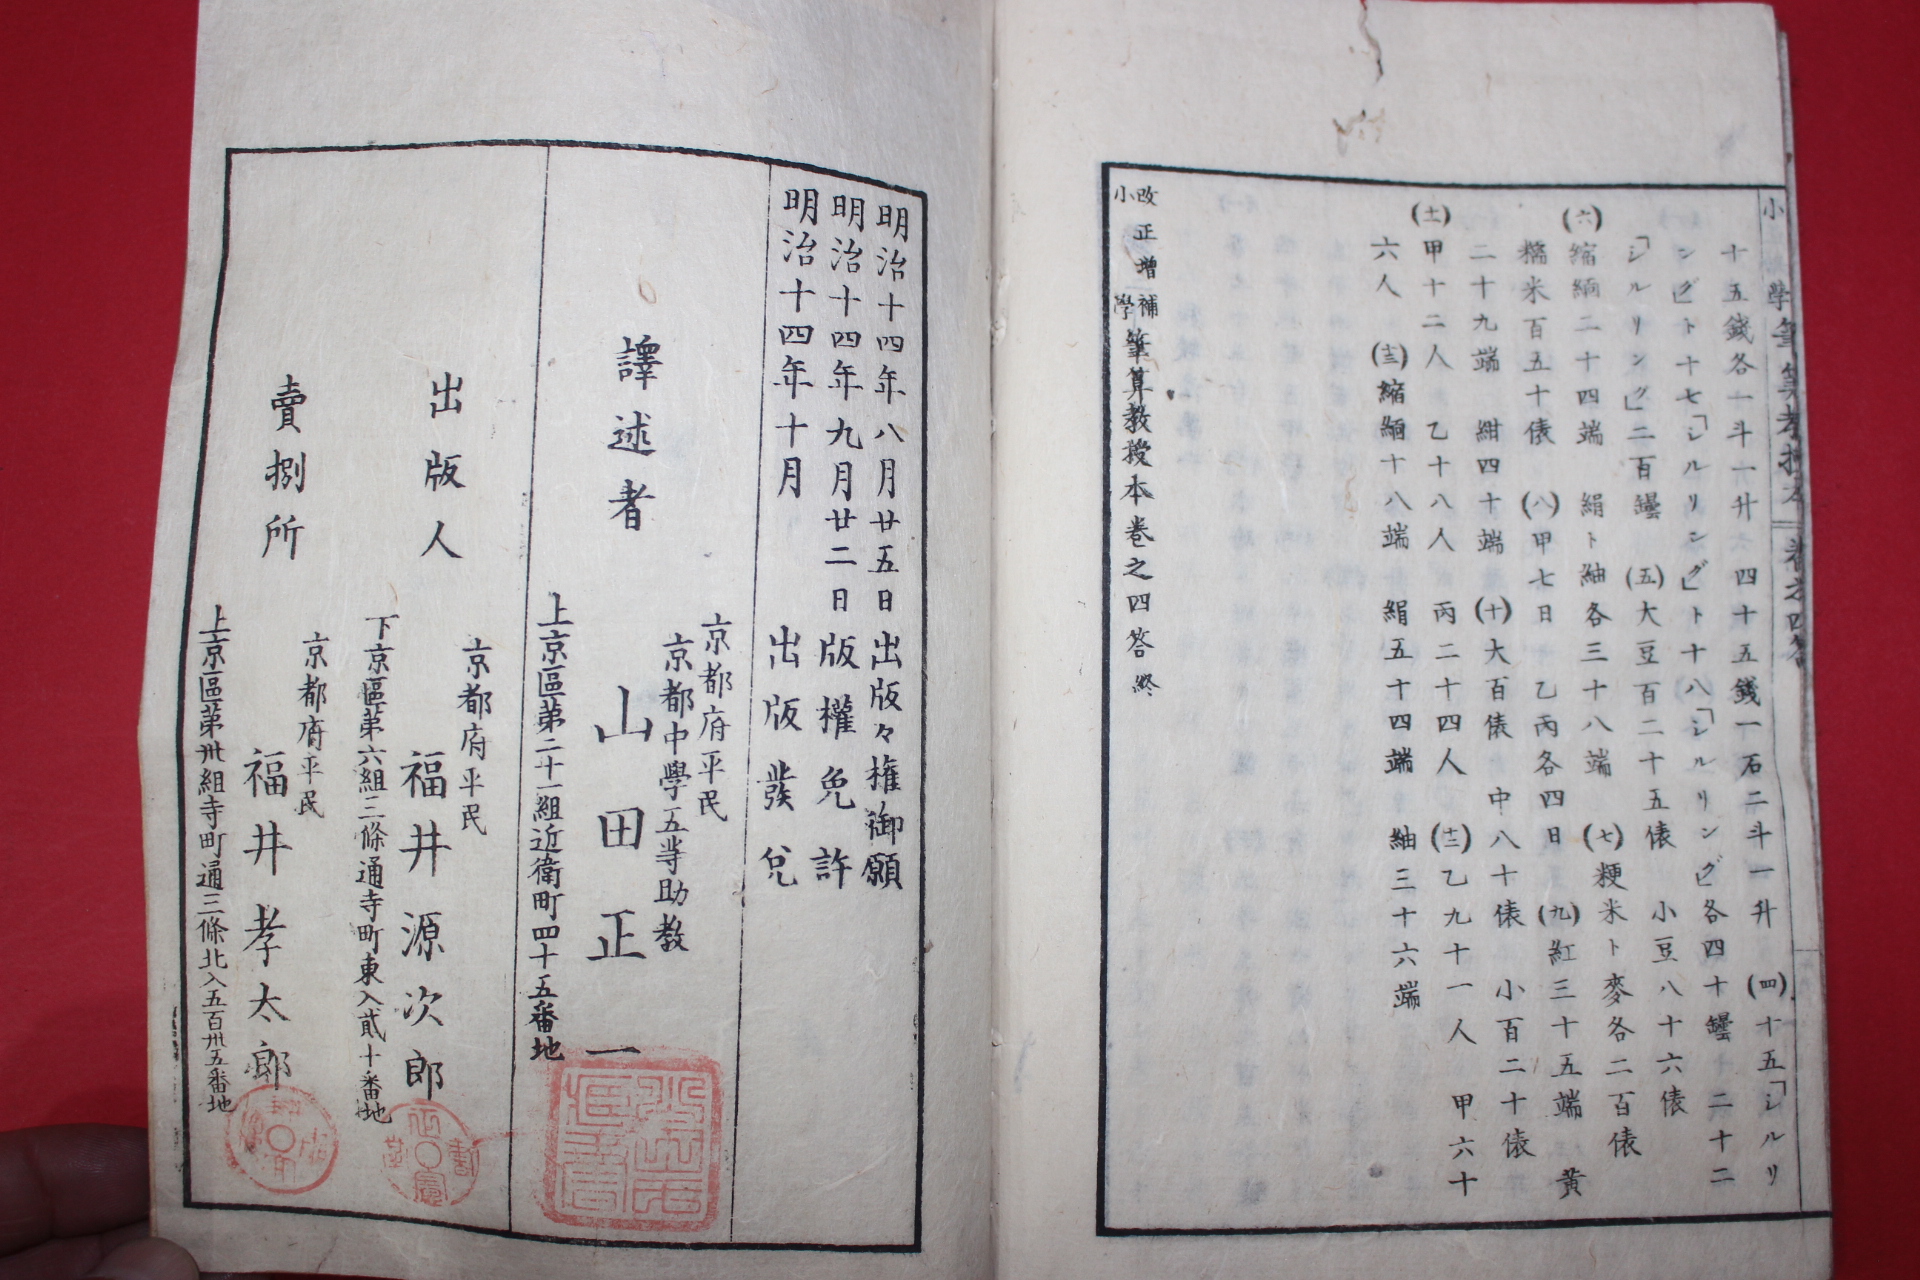 十五錢各一斗一升 四十五錢一石二斗一升 (四)十五「シルリ
ング」ト十七「シルリング」ト十八「シルリング」各四十罎 二十二
「シルリング」二百罎 (五)大豆百二十五俵 小豆八十六俵
(六)縮緬二十四端 絹ト紬各三十八端 (七)粳米ト麥各二百俵
糯米百五十俵 (八)甲七日 乙丙各四日 (九)紅三十五端 黄
二十九端 紺四十端 (十)大百俵 中八十俵 小百二十俵
(十一)甲十二人 乙十八人 丙二十四人 (十二)乙九十一人 甲六十
六人 (十三)縮緬十八端 絹五十四端 紬三十六端
改正增補小學筆算教授本卷之四答終
明治十四年八月廿五日出版々権御願
明治十四年九月廿二日版權免許
明治十四年十月 出版發兌
京都府平民
京都中學五等助教
譯述者 山田正一
上京區第二十一組近衛町四十五番地
京都府平民
出版人 福井源次郎
下京區第六組三條通寺町東入貳十番地
京都府平民
賣捌所 福井孝太郎
上京區第卅組寺町通三條北入五百卅五番地